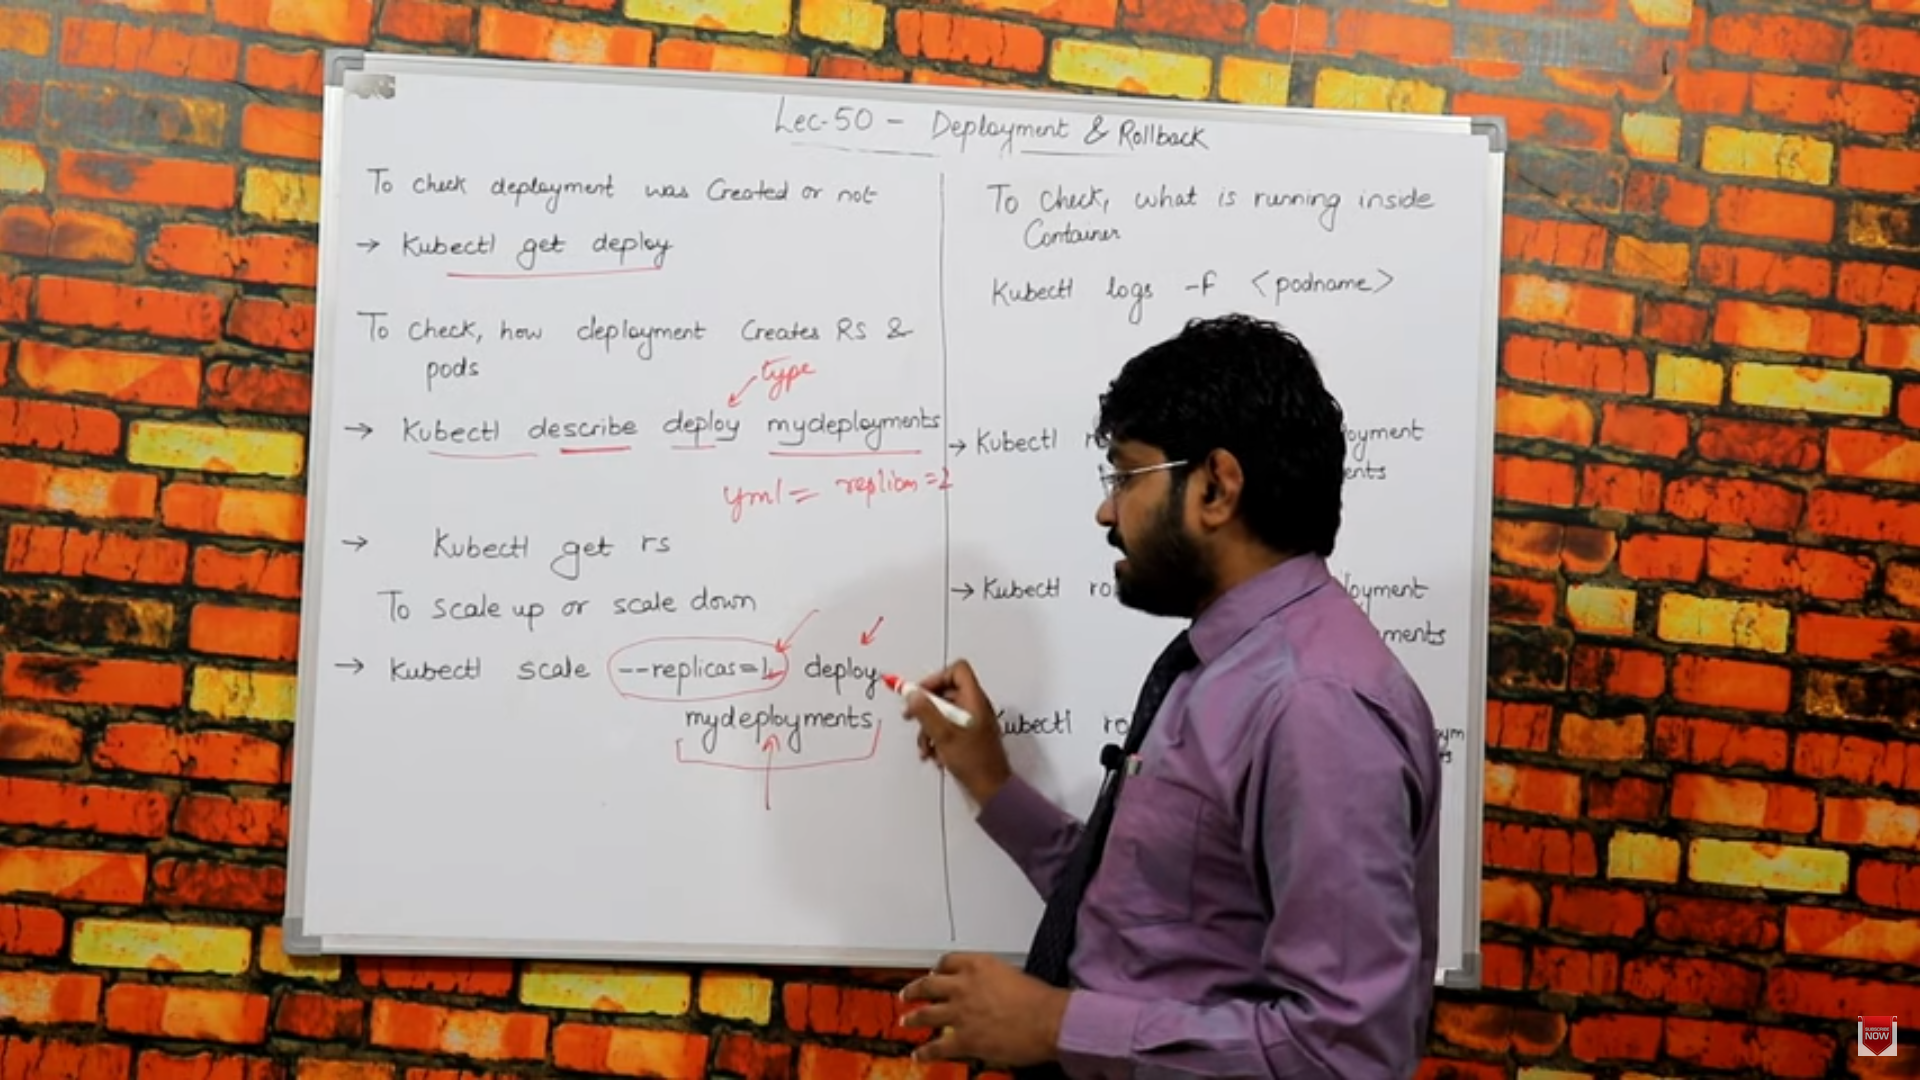 Lec-50 - Deployment & Rollback
To check deployment was Created or not
→ Kubectl get deploy
To check, how deployment Creates RS &
pods
type
→ Kubectl describe deploy mydeployments
yml = replicas=2
→ Kubectl get rs
To scale up or scale down
→ Kubectl scale --replicas=1 deploy
mydeployments
To Check, what is running inside
Container
Kubectl logs -f <podname>
→ Kubectl
→ Kubectl
Kubectl
SUBSCRIBE
NOW